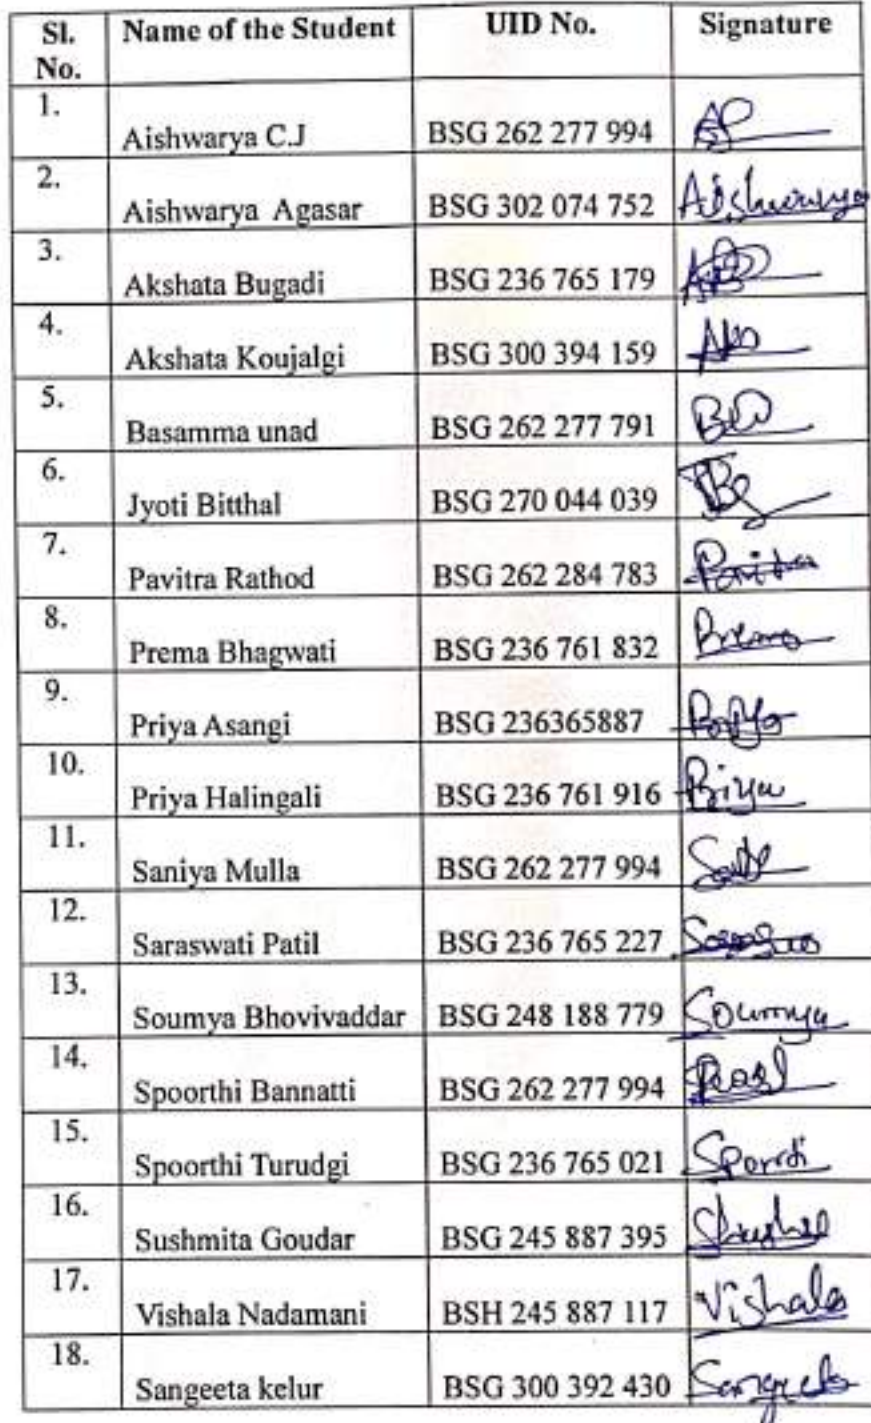 Sl. No. Name of the Student UID No. Signature
1. Aishwarya C.J BSG 262 277 994
2. Aishwarya Agasar BSG 302 074 752 Aishwarya
3. Akshata Bugadi BSG 236 765 179
4. Akshata Koujalgi BSG 300 394 159
5. Basamma unad BSG 262 277 791
6. Jyoti Bitthal BSG 270 044 039
7. Pavitra Rathod BSG 262 284 783
8. Prema Bhagwati BSG 236 761 832 Prema
9. Priya Asangi BSG 236365887
10. Priya Halingali BSG 236 761 916 Priya
11. Saniya Mulla BSG 262 277 994
12. Saraswati Patil BSG 236 765 227
13. Soumya Bhovivaddar BSG 248 188 779 Soumya
14. Spoorthi Bannatti BSG 262 277 994
15. Spoorthi Turudgi BSG 236 765 021
16. Sushmita Goudar BSG 245 887 395
17. Vishala Nadamani BSH 245 887 117 Vishala
18. Sangeeta kelur BSG 300 392 430 Sangeeta